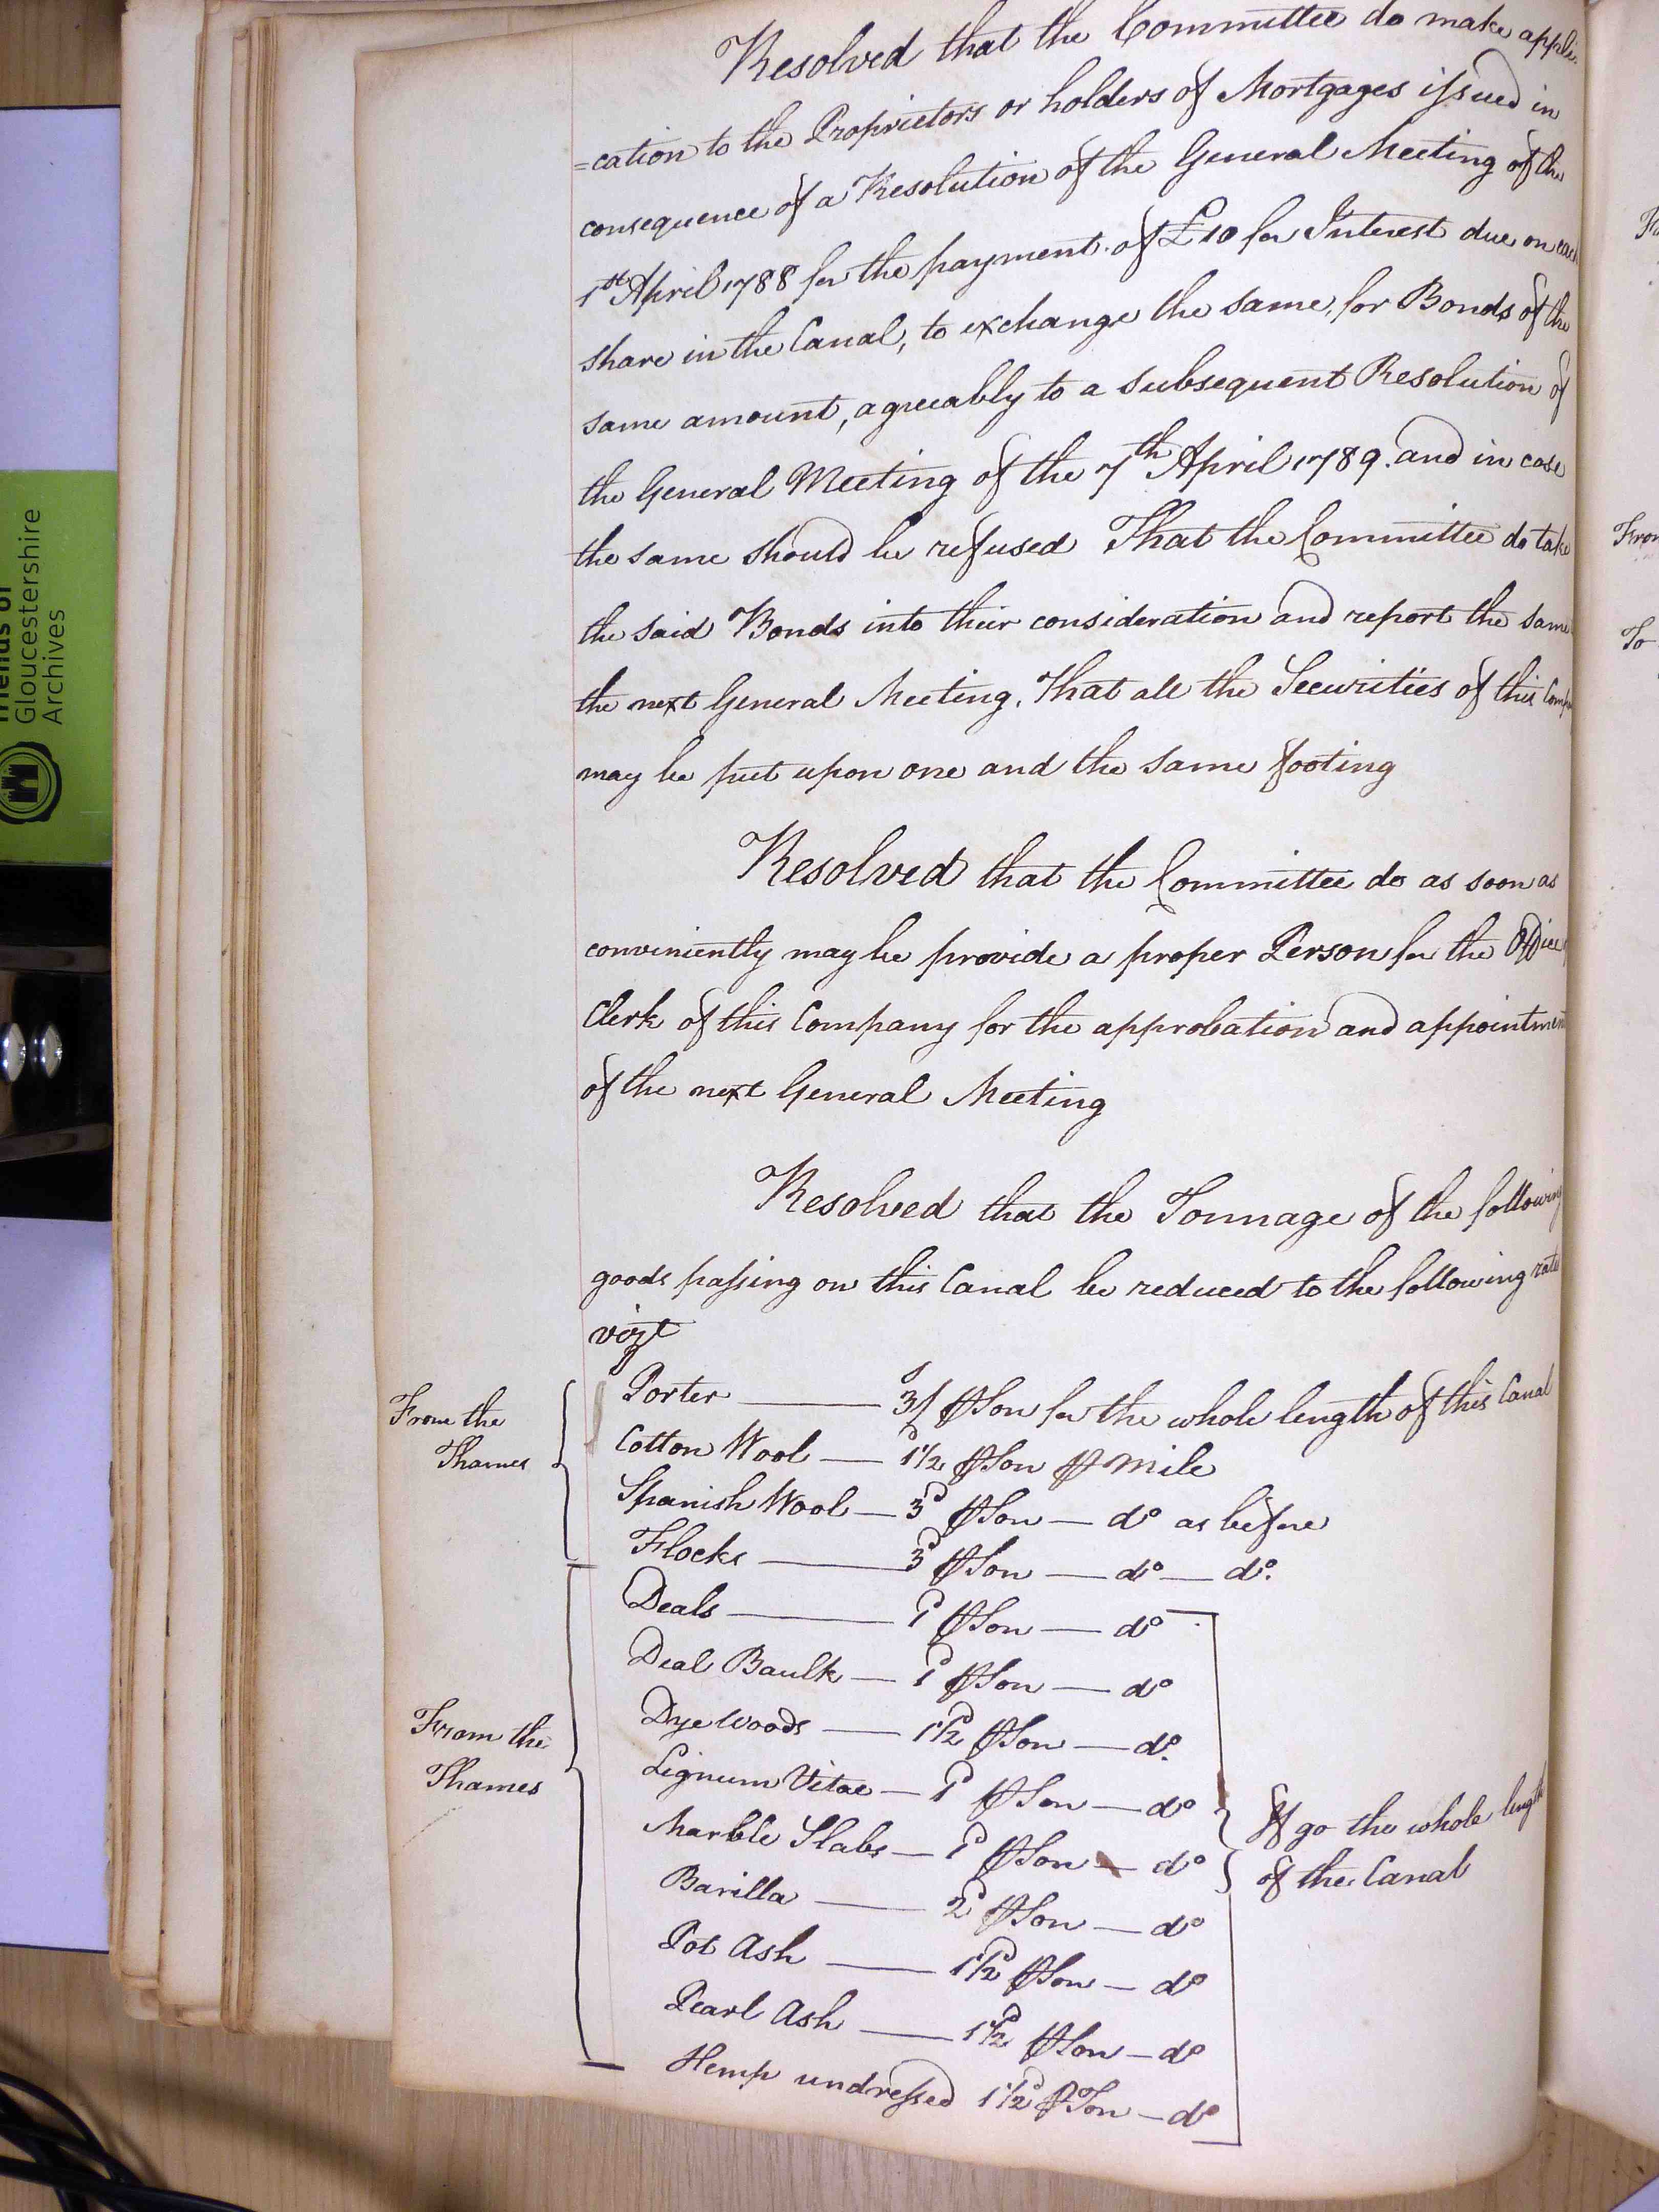 Resolved that the Committee do make appli
=cation to the Proprietors or holders of Mortgages issued in
consequence of a Resolution of the General Meeting of the
1st April 1788 for the payment of £10 for Interest due on each
share in the Canal, to exchange the same, for Bonds of the
same amount, agreeably to a subsequent Resolution of
the General Meeting of the 7th April 1789. and in case
the same should be refused That the Committee do take
the said Bonds into their consideration and report the same
the next General Meeting, That all the Securities of this Comp
may be put upon one and the same footing
Resolved that the Committee do as soon as
conveniently may be provide a proper Person for the Office
Clerk of this Company for the approbation and appointment
of the next General Meeting
Resolved that the Tonnage of the following
goods passing on this Canal be reduced to the following rate
vizt
From the
Thames
Porter — 3/ ⅌ Ton for the whole length of this Canal
Cotton Wool — 1½d ⅌ Ton ⅌ Mile
Spanish Wool — 3d ⅌ Ton — do as before
Flocks — 3d ⅌ Ton — do — do.
From the
Thames
Deals — 1d ⅌ Ton — do
Deal Baulk — 1d ⅌ Ton — do
Dye Woods — 1½d ⅌ Ton — do.
Lignum Vitae — 1d ⅌ Ton — do
Marble Slabs — 1d ⅌ Ton — do
Barilla — 2d ⅌ Ton — do
Pot Ash — 1½d ⅌ Ton — do
Pearl Ash — 1½d ⅌ Ton — do
Hemp undressed 1½d ⅌ Ton — do
If go the whole length
of the Canal
From
To
Friends of
Gloucestershire
Archives